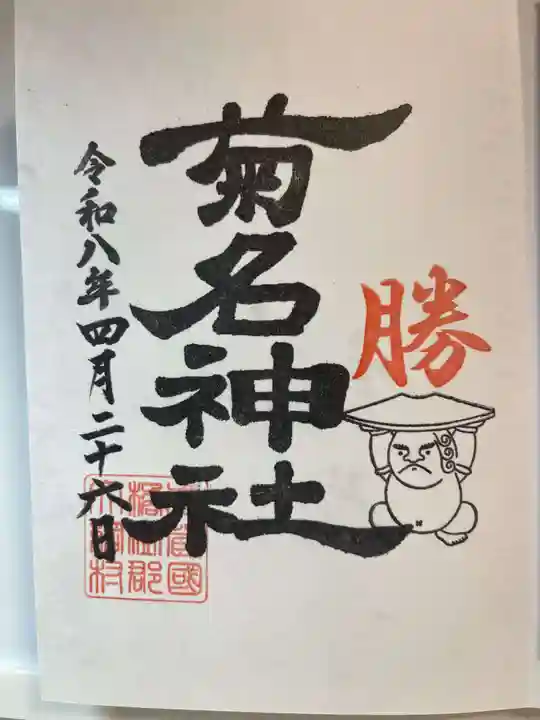 勝
菊名神社
令和八年四月二十六日